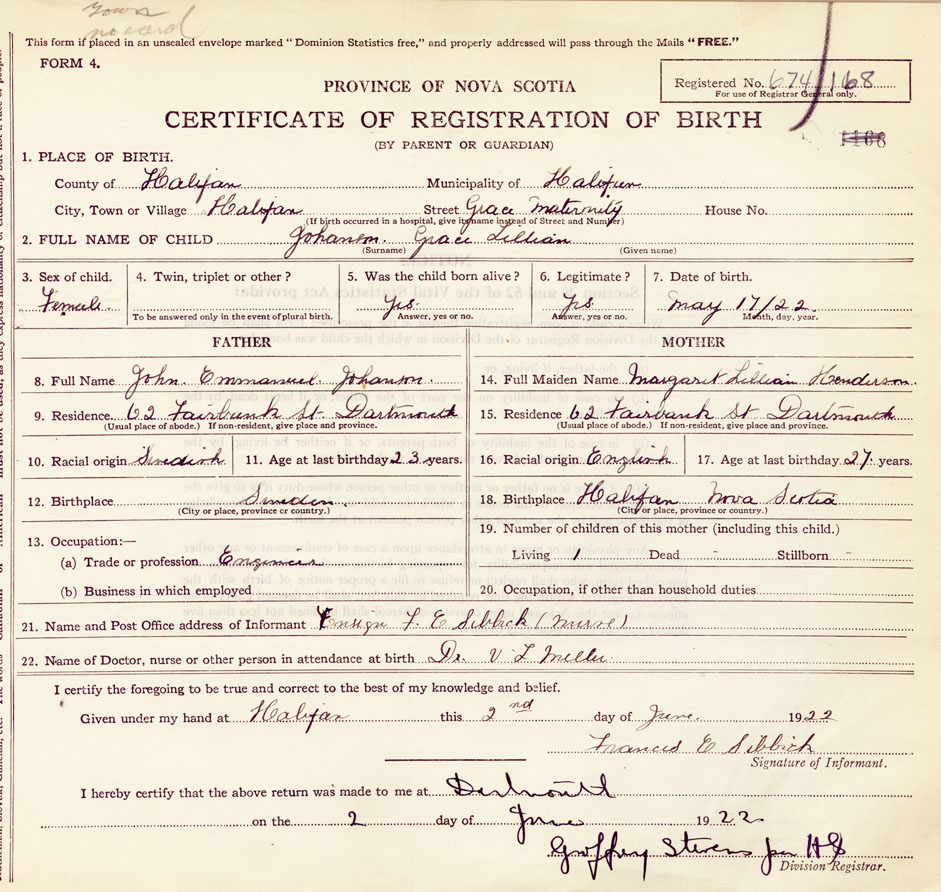 Town
no card
This form if placed in an unsealed envelope marked "Dominion Statistics free," and properly addressed will pass through the Mails "FREE."
FORM 4.
PROVINCE OF NOVA SCOTIA
Registered No. 674/168
For use of Registrar General only.
CERTIFICATE OF REGISTRATION OF BIRTH
(BY PARENT OR GUARDIAN)
1168
1. PLACE OF BIRTH.
County of Halifax Municipality of Halifax
City, Town or Village Halifax Street Grace Maternity House No.
(If birth occurred in a hospital, give its name instead of Street and Number)
2. FULL NAME OF CHILD Johanson. Grace Lillian
(Surname) (Given name)
3. Sex of child. 4. Twin, triplet or other? 5. Was the child born alive? 6. Legitimate? 7. Date of birth.
Female. Yes. Yes. May 17/22
To be answered only in the event of plural birth. Answer, yes or no. Answer, yes or no. Month, day, year.
FATHER MOTHER
8. Full Name John Emmanuel Johanson. 14. Full Maiden Name Margaret Lillian Henderson.
9. Residence. 62 Fairbank St. Dartmouth 15. Residence 62 Fairbank St Dartmouth
(Usual place of abode.) If non-resident, give place and province. (Usual place of abode.) If non-resident, give place and province.
10. Racial origin Swedish 11. Age at last birthday 23 years. 16. Racial origin English 17. Age at last birthday 27 years.
12. Birthplace Sweden 18. Birthplace Halifax Nova Scotia
(City or place, province or country.) (City or place, province or country.)
19. Number of children of this mother (including this child.)
13. Occupation:—
(a) Trade or profession Engineer Living 1 Dead - Stillborn -
(b) Business in which employed 20. Occupation, if other than household duties
21. Name and Post Office address of Informant Ensign F. E Sibbick (Nurse)
22. Name of Doctor, nurse or other person in attendance at birth Dr. V L Miller
I certify the foregoing to be true and correct to the best of my knowledge and belief.
Given under my hand at Halifax this 2nd day of June. 1922
Francis E Sibbick
Signature of Informant.
I hereby certify that the above return was made to me at Dartmouth
on the 2 day of June 1922
Geoffrey Stevens
Division Registrar.